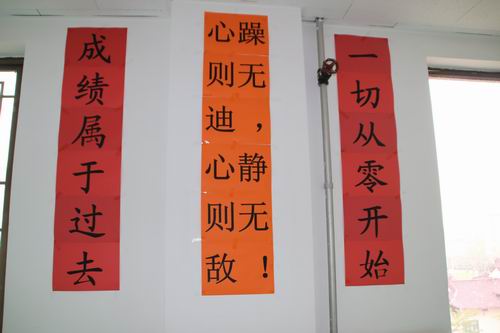 成绩属于过去
心躁
则无
迪，
心静
则无
敌！
一切从零开始